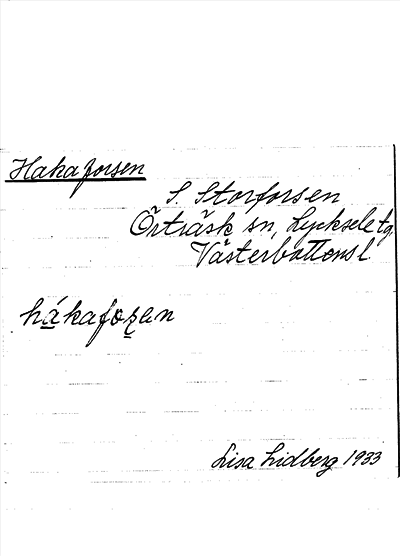 Hakaforsen
S. Storforsen
Örträsk sn, Lycksele tg,
Västerbottens l.
hákafoʂan
Lisa Lidberg 1933